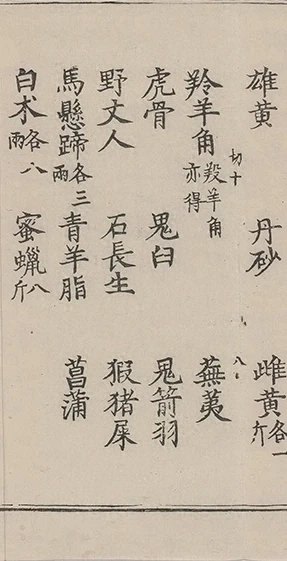 雄黄 丹砂 雌黄各一斤
羚羊角羖羊角亦得切十八 蕪荑
虎骨 鬼臼 鬼箭羽
野丈人 石長生 猳猪屎
馬懸蹄各三兩 青羊脂 菖蒲
白朮各八兩 蜜蝋八斤